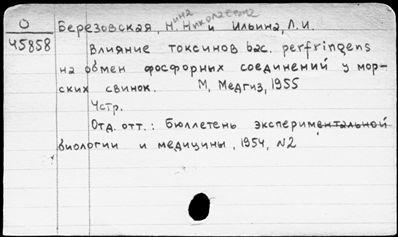 О
45858
Березовская, Н.Н. и Ильина, Л.И.
Нина Николаевна
Влияние токсинов bac. perfringens
на обмен фосфорных соединений у мор-
ских свинок. М, Медгиз, 1955
4стр.
Отд. отт.: бюллетень экспериментальной
биологии и медицины, 1954, N2